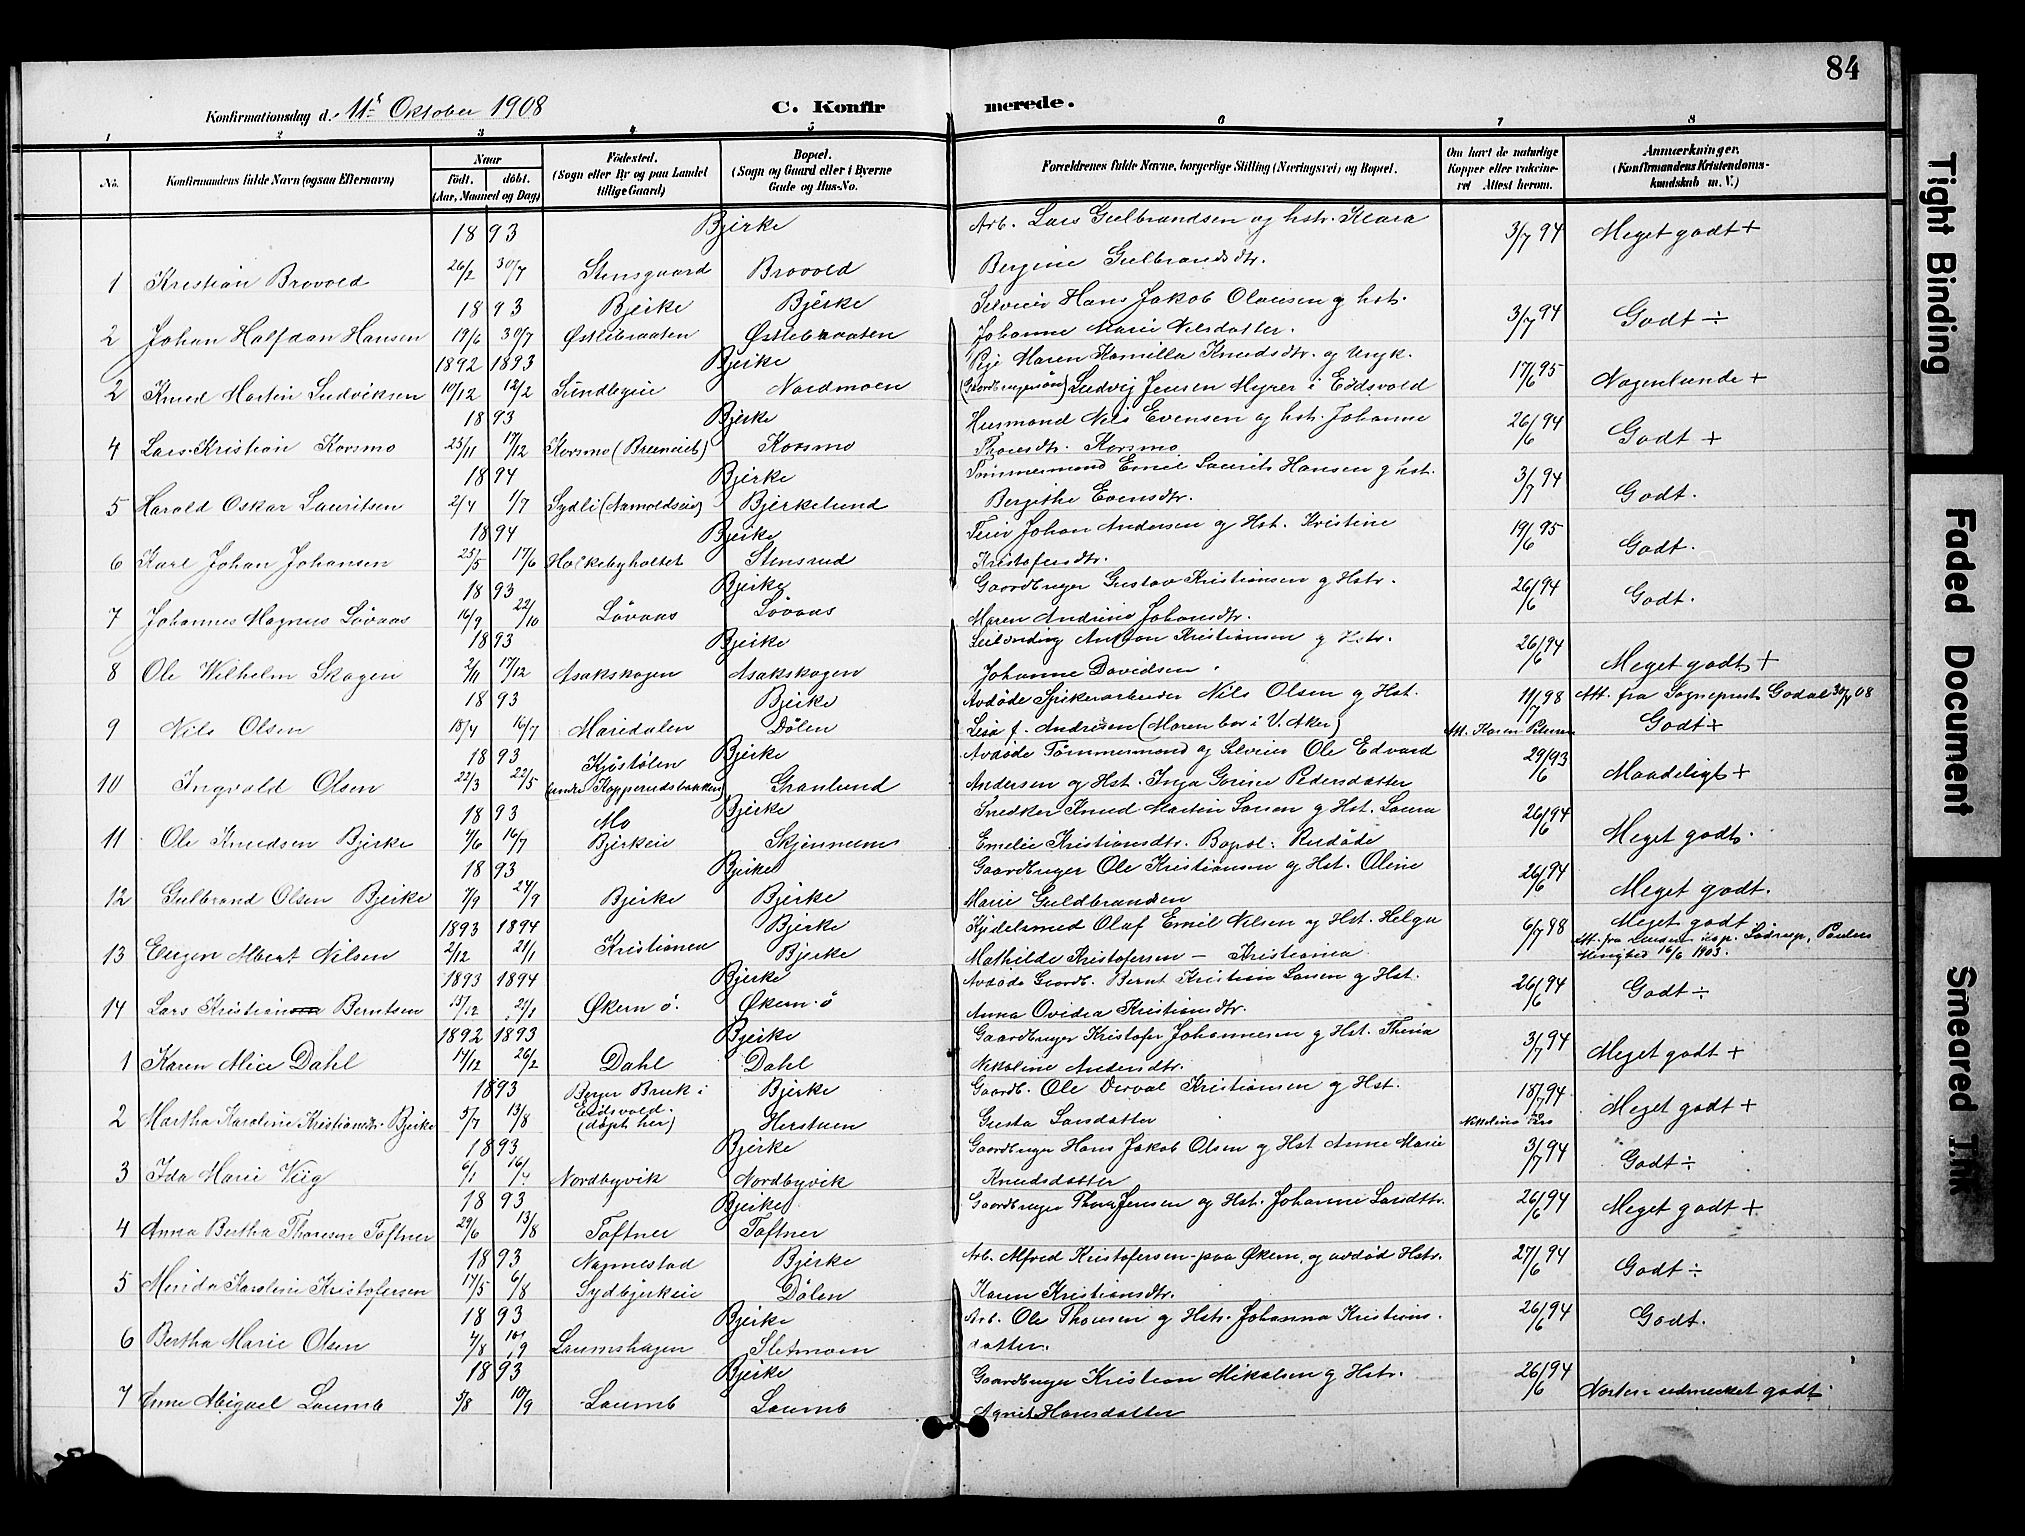 84
Konfirmationsdag d. 11te Oktober 1908
C. Konfirmerede.
1 2 3 4 5 6 7 8
No.
Konfirmandens fulde Navn (ogsaa Efternavn)
Naar
Födt. döbt.
(Aar, Maaned og Dag)
Födested.
(Sogn eller By og paa Landet tillige Gaard)
Bopæl.
(Sogn og Gaard eller i Byerne Gade og Hus-No.
Forældrenes fulde Navne, borgerlige Stilling (Næringsvei) og Bopæl.
Om havt de naturlige Kopper eller vakcineret Attest herom.
Anmærkninger.
(Konfirmandens Kristendomskundskab m. V.)
1893 Bjerke Arb. Lars Gulbrandsen og hstr. Klara 3/7 94 Meget godt +
1 Kristian Brovold 26/2 30/7 Stensgaard Brovold Bergine Gulbrandsdtr.
1893 Bjerke Bjerke Selveier Hans Jakob Olausen og hst. 3/7 94 Godt ÷
2 Johan Halfdan Hansen 19/6 30/7 Østlibraaten Østlebraaten Johanne Marie Nilsdatter.
1892 1893 Bjerke Pige Maren Kamilla Knudsdtr. og Ungk. 17/6 95 Nogenlunde +
2 Knud Martin Ludviksen 10/12 12/2 Sundbyeie Nordmoen (Gaardbrugersøn) Ludvig Jensen Myrer i Eidsvold
1893 Bjerke Husmand Nils Evensen og hst. Johanne 26/6 94 Godt +
4 Lars Kristian Korsmo 25/11 17/12 Korsmo Korsmo Thoresdtr. Korsmo
1894 Bjerke Tømmermand Emil Laurits Hansen g hst. 3/7 94 Godt.
5 Harald Oskar Lauritsen 2/4 1/7 Sydli Bjerkelund Bergithe Evensdtr.
1894 Bjerke Feier Johan Andersen og Hst. Kristine 19/6 95 Godt.
6 Karl Johan Johansen 25/5 17/6 Holkebyholtet Stensrud Kristofersdtr.
1893 Bjerke Gaardbruger Gustav Kristiansen g Hstr. 26/6 94 Godt.
7 Johannes Magnus Løvaas 16/9 22/10 Løvaas Løvaas Maren Andrine Johansdtr.
1893 Bjerke Anton Kristiansen g Hstr. 26/6 94 Meget godt +
8 Ole Wilhelm Skogen 2/11 17/12 Asakskogen Asakskogen Johanne Davidsen.
1893 Bjerke Avdøde Spikerarbeider Nils Olsen g Hst. 11/7 98 Att. fra Sogneprest Godal 08
9 Nils Olsen 18/4 16/7 Maridalen Dølen Lisa f. Andresen (Moren bor i V. Aker) Att. Karen Petersen Godt ÷
1893 Kjøstølen Bjerke Avdøde Tømmermand og Selveier Ole Edvard 29/6 93 Maadeligt +
10 Ingvald Olsen 22/3 22/5 (under Kopperudsbakken) Granlund Andersen og Hst. Inga Gorine Pedersdatter
1893 Mo Bjerke Snedker Knud Martin Larsen g Hst. Laura 26/6 94 Meget godt.
11 Ole Knudsen Bjerke 4/6 16/7 Bjerkeie Skjønneem Emelie Kristiansdtr. Bopæl:
1893 Bjerke Gaardbruger Ole Kristiansen g Hst. Oline 26/6 94 Meget godt.
12 Gulbrand Olsen Bjerke 7/9 24/9 Bjerke Bjerke Marie Guldbrandsen
1893 1894 Bjerke Kjedelsmed Olaf Emil Nilsen og Hst. Helga 6/7 98 Meget godt
13 Eugen Albert Nilsen 2/12 21/1 Kristiania Bjerke Mathilde Kristofersen – Kristiania Att. fra Paulus Menighed 16/6 1903.
1893 1894 Bjerke Avdøde Gaardb. Bernt Kristian Larsen g Hst. 26/6 94 Godt ÷
14 Lars Kristian Berntsen 15/12 21/1 Økern ö. Økern ö Anna Ovidia Kristiansdtr.
1892 1893 Bjerke Gaardbruger Kristofer Johannesen g Hst. Thrine 3/7 94 Meget godt +
1 Karen Alice Dahl 17/12 26/2 Dahl Dahl Nikoline Andersdtr.
1893 Berger Bruk i Bjerke Gaardb. Ole Kristiansen g Hst. 18/7 94 Meget godt +
2 Martha Karoline Kristiansdtr. Bjerke 5/7 13/8 Eidsvold. (døpt her) Herstuen Gusta Larsdatter Nikoline
1893 Bjerke Gaardbruger Hans Jakob Olsen g Hst Anne Marie 3/7 94 Godt ÷
3 Ida Marie Viig 6/1 16/4 Nordbyvik Nordbyvik Knudsdatter
1893 Bjerke Gaardbruger Thore Jensen og Hst. Johanne Larsdtr. 26/6 94 Meget godt +
4 Anna Bertha Thoresen Toftner 29/6 13/8 Toftner Toftner
1893 Nannestad Bjerke Arb. Alfred Kristofersen paa Økern, og avdød Hstr. 27/6 94 Godt ÷
5 Minda Karoline Kristofersen 17/5 6/8 Sydbjerkeie Dølen Karen Kristiansdtr.
1893 Bjerke Arb. Ole Thoresen g Hstr. Johanna Kristians- 26/6 94 Godt.
6 Bertha Marie Olsen 4/8 10/9 Laumshagen Sletmoen datter.
1893 Bjerke Gaardbruger Kristian Mikalsen g Hstr. 26/6 94 Næsten udmerket godt.
7 Anne Abigael Laumb 5/8 10/9 Laumb Laumb Agnis Hansdatter
Tight Binding
Faded Document
Smeared Ink